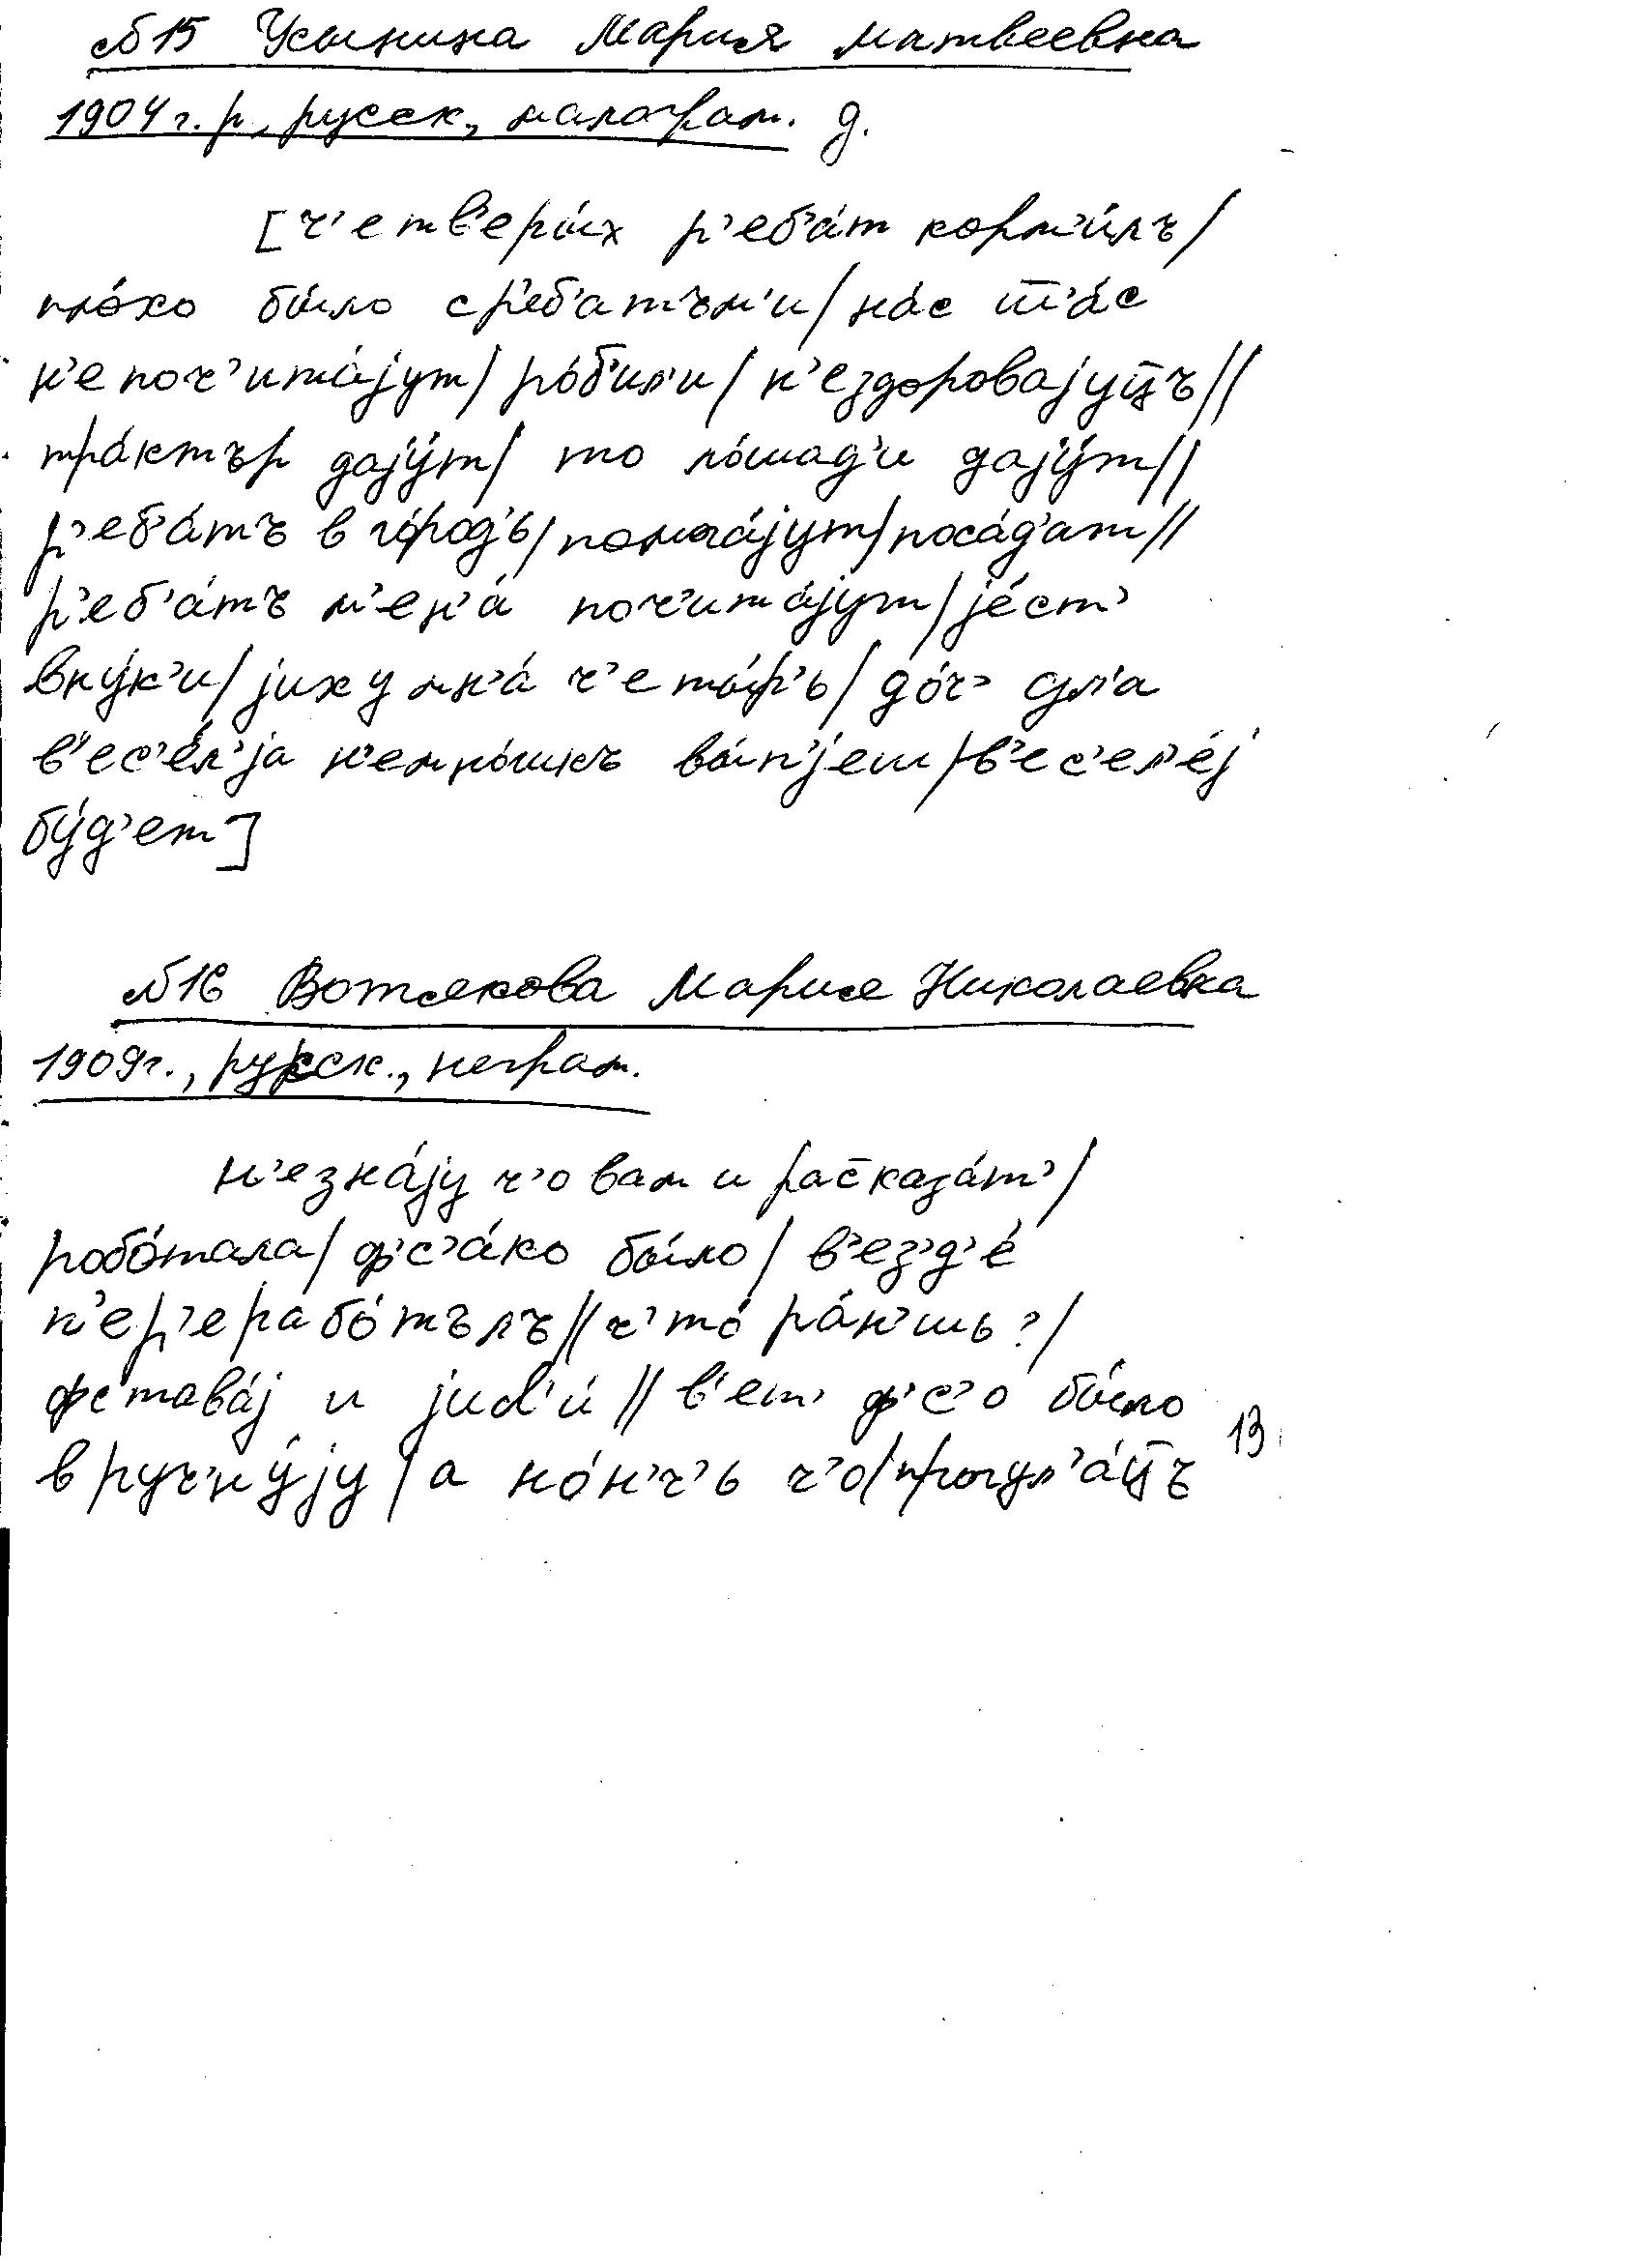 №15 Усынина Мария Матвеевна
1904 г. р., русск., малограм. д.
[ч’етв’еры́х р’еб’а́т корм’и́лъ/
пло́хо бы́ло с р’еб’атъм’и/ на́с ш̄’а́с
н’е поч’ита́jут/ ро́б’ил’и/ н’ездоровајуц̄ъ//
тра́ктър даjу́т/ то ло́шад’и даjу́т//
р’еб’а́тъ в го́род’ь/ помога́jут/ поса́д’ат//
р’еб’а́тъ м’ен’а́ поч’ита́jут/ jе́ст’
вну́к’и/ jих у мн’а́ ч’еты́р’ь/ до́ч’ дл’а
в’ес’е́л’jа н’емно́шкъ вы́п’jеш/ в’ес’ел’е́j
бу́д’ет]
№16 Вотякова Мария Николаевна
1909г., русск., неграм.
н’е зна́jу ч’о вам и рас̄каза́т’/
робо́тала/ ф’с’а́ко бы́ло/ в’ез’д’е́
п’ер’ерабо́тълъ// ч’то́ ра́н’шь?/
фстава́j и jид’и́// в’ет’ ф’с’о бы́ло
в руч’ну́jу/ а но́н’ч’ь ч’о/ прогул’а́ц̄ъ
13